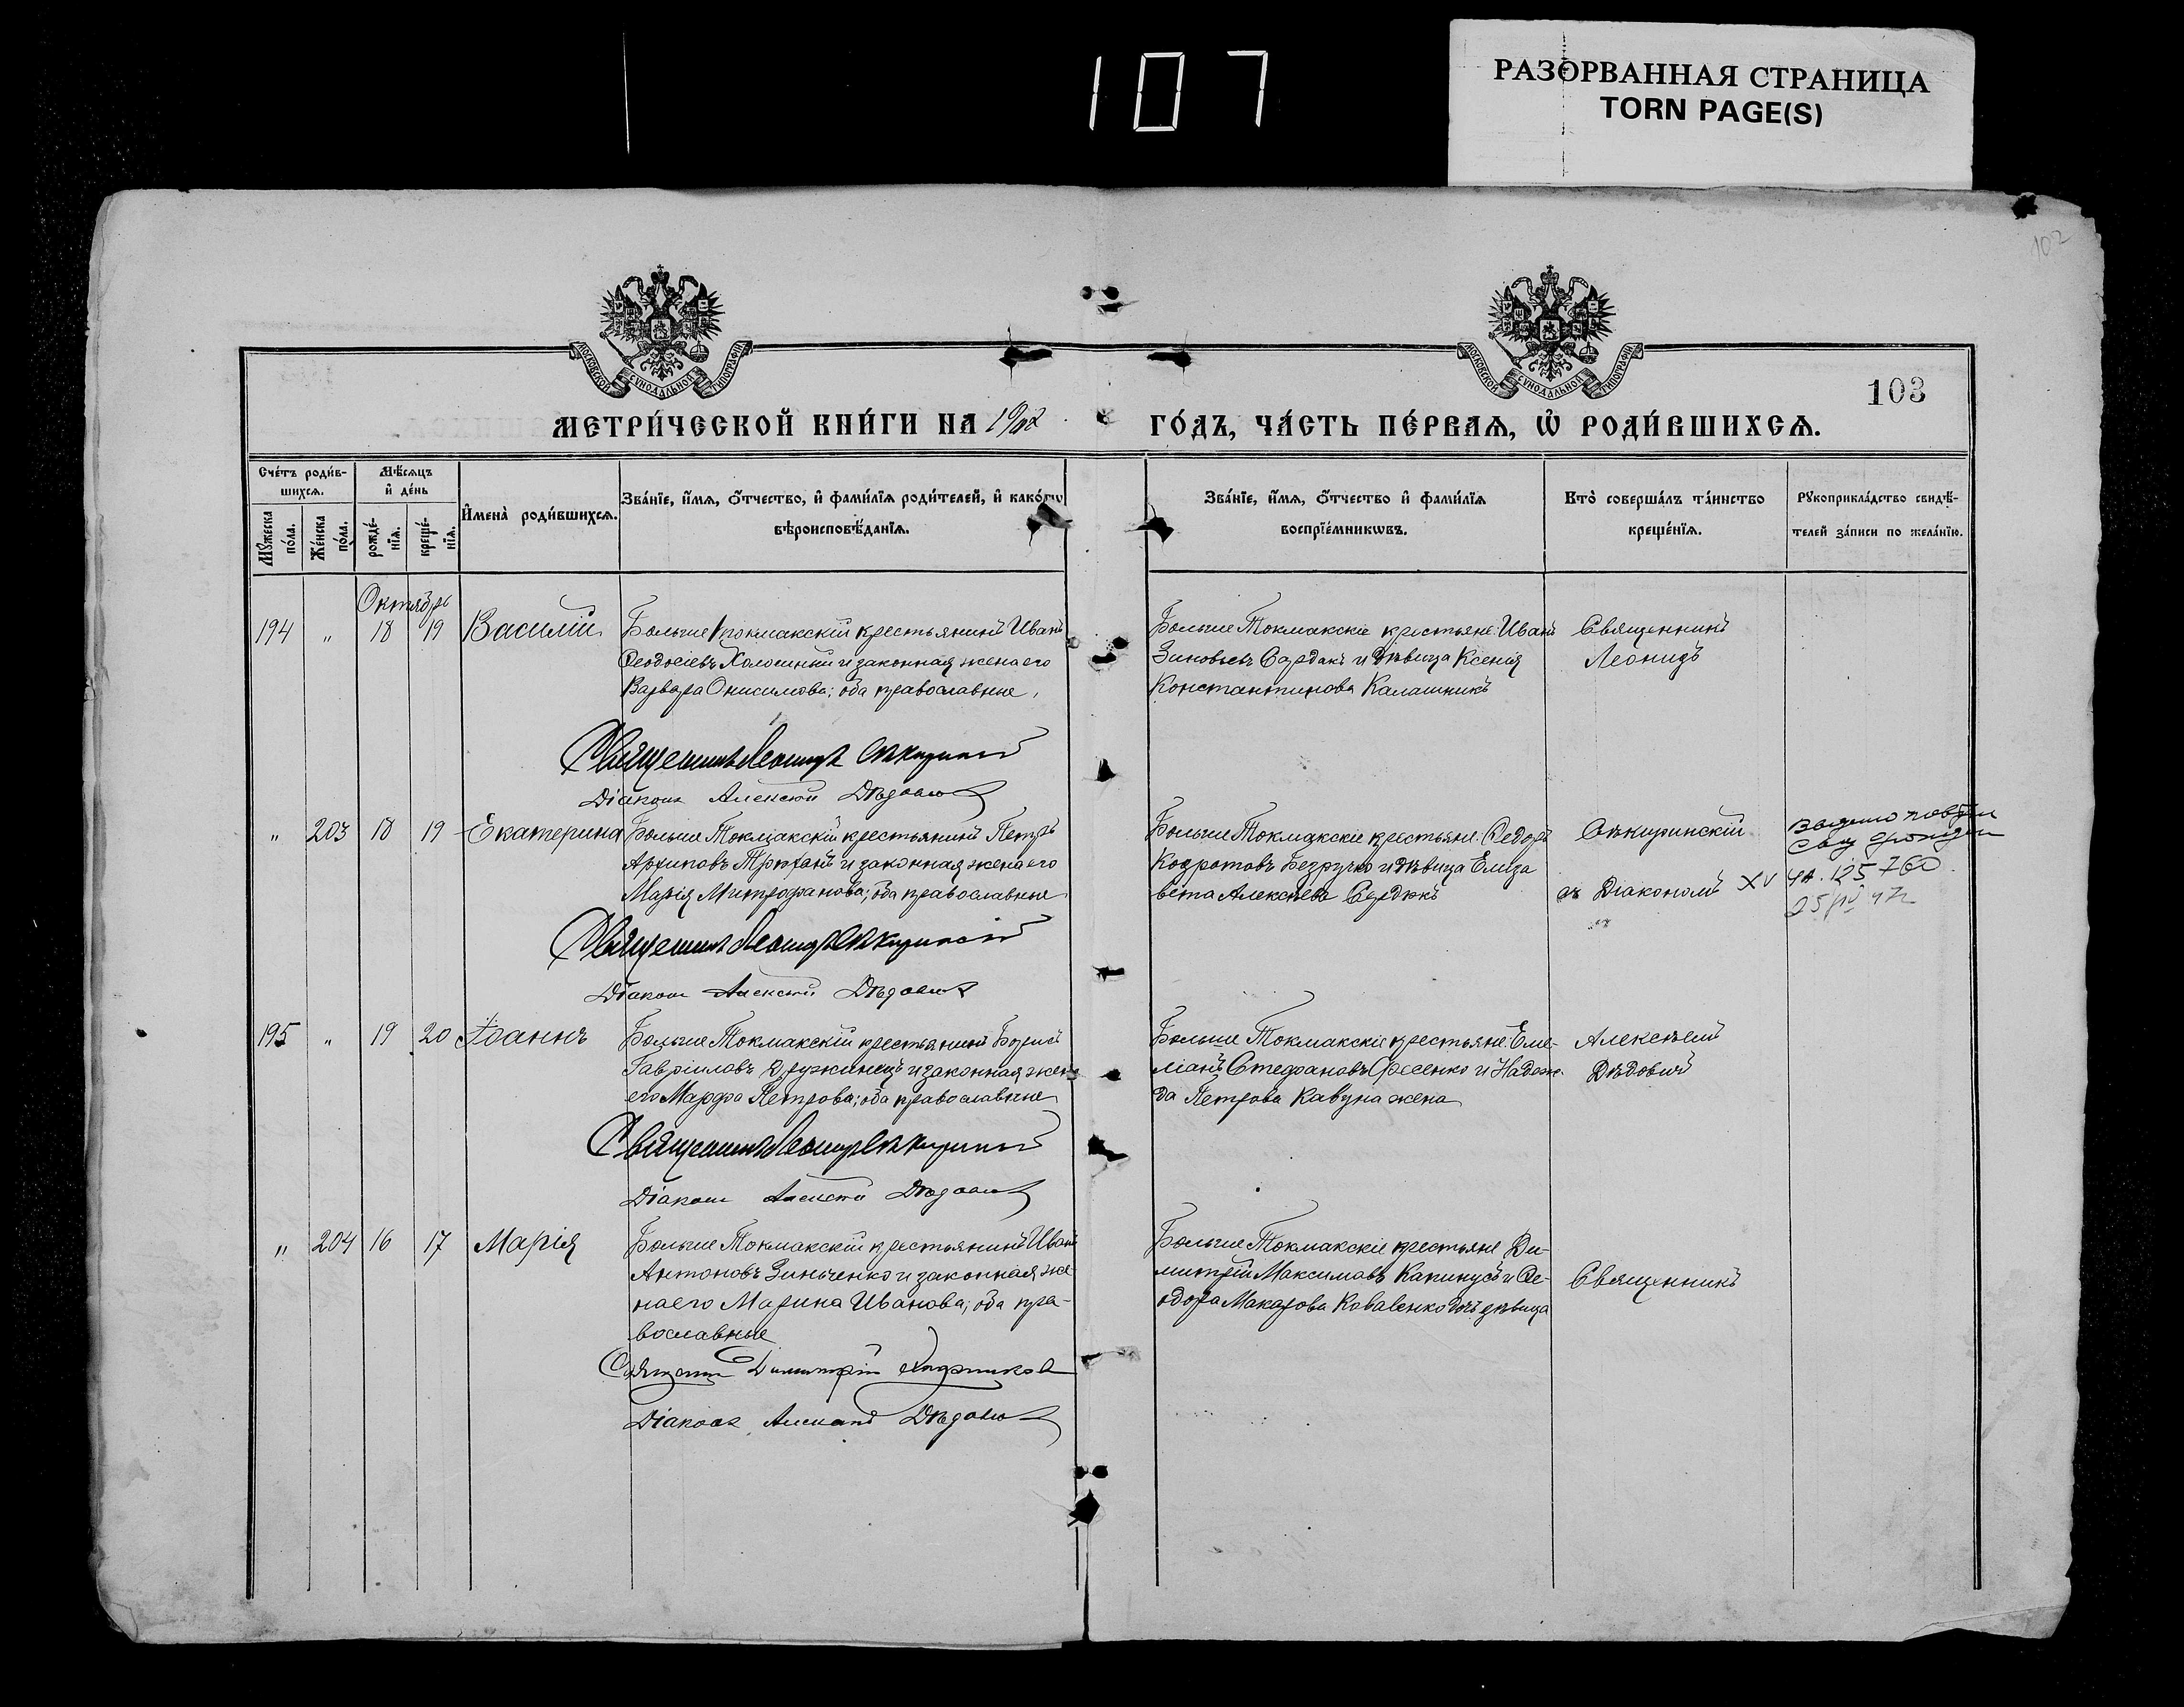 107
РАЗОРВАННАЯ СТРАНИЦА
TORN PAGE(S)
102
МОСКОВСКОЙ СУНОДАЛЬНОЙ ТИПОГРАФІИ
МОСКОВСКОЙ СУНОДАЛЬНОЙ ТИПОГРАФІИ
103
МЕТРИ́ЧЕСКОЙ КНИ́ГИ НА 1902
ГО́ДЪ, ЧА́СТЬ ПЕ́РВАѦ, Ѡ҆ РОДИ́ВШИХСѦ.
Сче́тъ роди́в-
шихсѧ.
Мѣ́сѧцъ
и҆ де́нь
Мꙋ́жеска
по́ла.
Же́нска
по́ла.
рожде́-
нїѧ.
креще́-
нїѧ.
И҆мена̀ роди́вшихсѧ.
Зва́нїе, и҆́мѧ, ѻ҆́тчество, и҆ фами́лїѧ роди́телей, и҆ како́гѡ
вѣроисповѣ́данїѧ.
Зва́нїе, и҆́мѧ, ѻ҆́тчество и҆ фами́лїѧ
воспрїе́мникѡвъ.
Кто̀ соверша́лъ та́инство
креще́нїѧ.
Рꙋкоприкла́дство свидѣ́-
телей за́писи по жела́нїю.
Октябрь
194 " 18 19 Василій
Больше Токмакскій крестьянинъ Иванъ
Феодосіевъ Холошный и законная жена его
Варвара Онисимова; оба православные.
Священникъ Леонидъ Сѣкиринскій
Діаконъ Алексѣй Дѣдовичъ
Больше Токмакскіе крестьяне: Иванъ
Зиновьевъ Сардакъ и дѣвица Ксенія
Константинова Калашникъ
Священникъ
Леонидъ
" 203 18 19 Екатерина
Больше Токмакскій крестьянинъ Петръ
Архиповъ и законная жена его
Марія Митрофанова; оба православные
Священникъ Леонидъ Сѣкиринскій
Діаконъ Алексѣй Дѣдовичъ
Больше Токмакскіе крестьяне: Федоръ
Кодратовъ Безручко и дѣвица Елиза
вета Алексѣева
Сѣкиринскій
съ Діакономъ XV
ЧА. 125 760
195 " 19 20 Іоаннъ
Больше Токмакскій крестьянинъ Борисъ
Гавріиловъ Дружинецъ и законная жена
его Марфа Петрова; оба православные
Священникъ Леонидъ Сѣкиринскій
Діаконъ Алексѣй Дѣдовичъ
Больше Токмакскіе крестьяне: Еме-
ліанъ Стефановъ Фесенко и Надеж-
да Петрова Кавуна жена
Алексѣемъ
Дѣдовичъ
" 204 16 17 Марія
Больше Токмакскій крестьянинъ Иванъ
Антоновъ Зинченко и законная же-
на его Марина Иванова; оба пра-
вославные
Священникъ Димитрій
Діаконъ Алексѣй Дѣдовичъ
Больше Токмакскіе крестьяне Ди-
митрій Максимовъ Капинусъ и Фе-
одора Макарова Коваленко дочь дѣвица
Священникъ